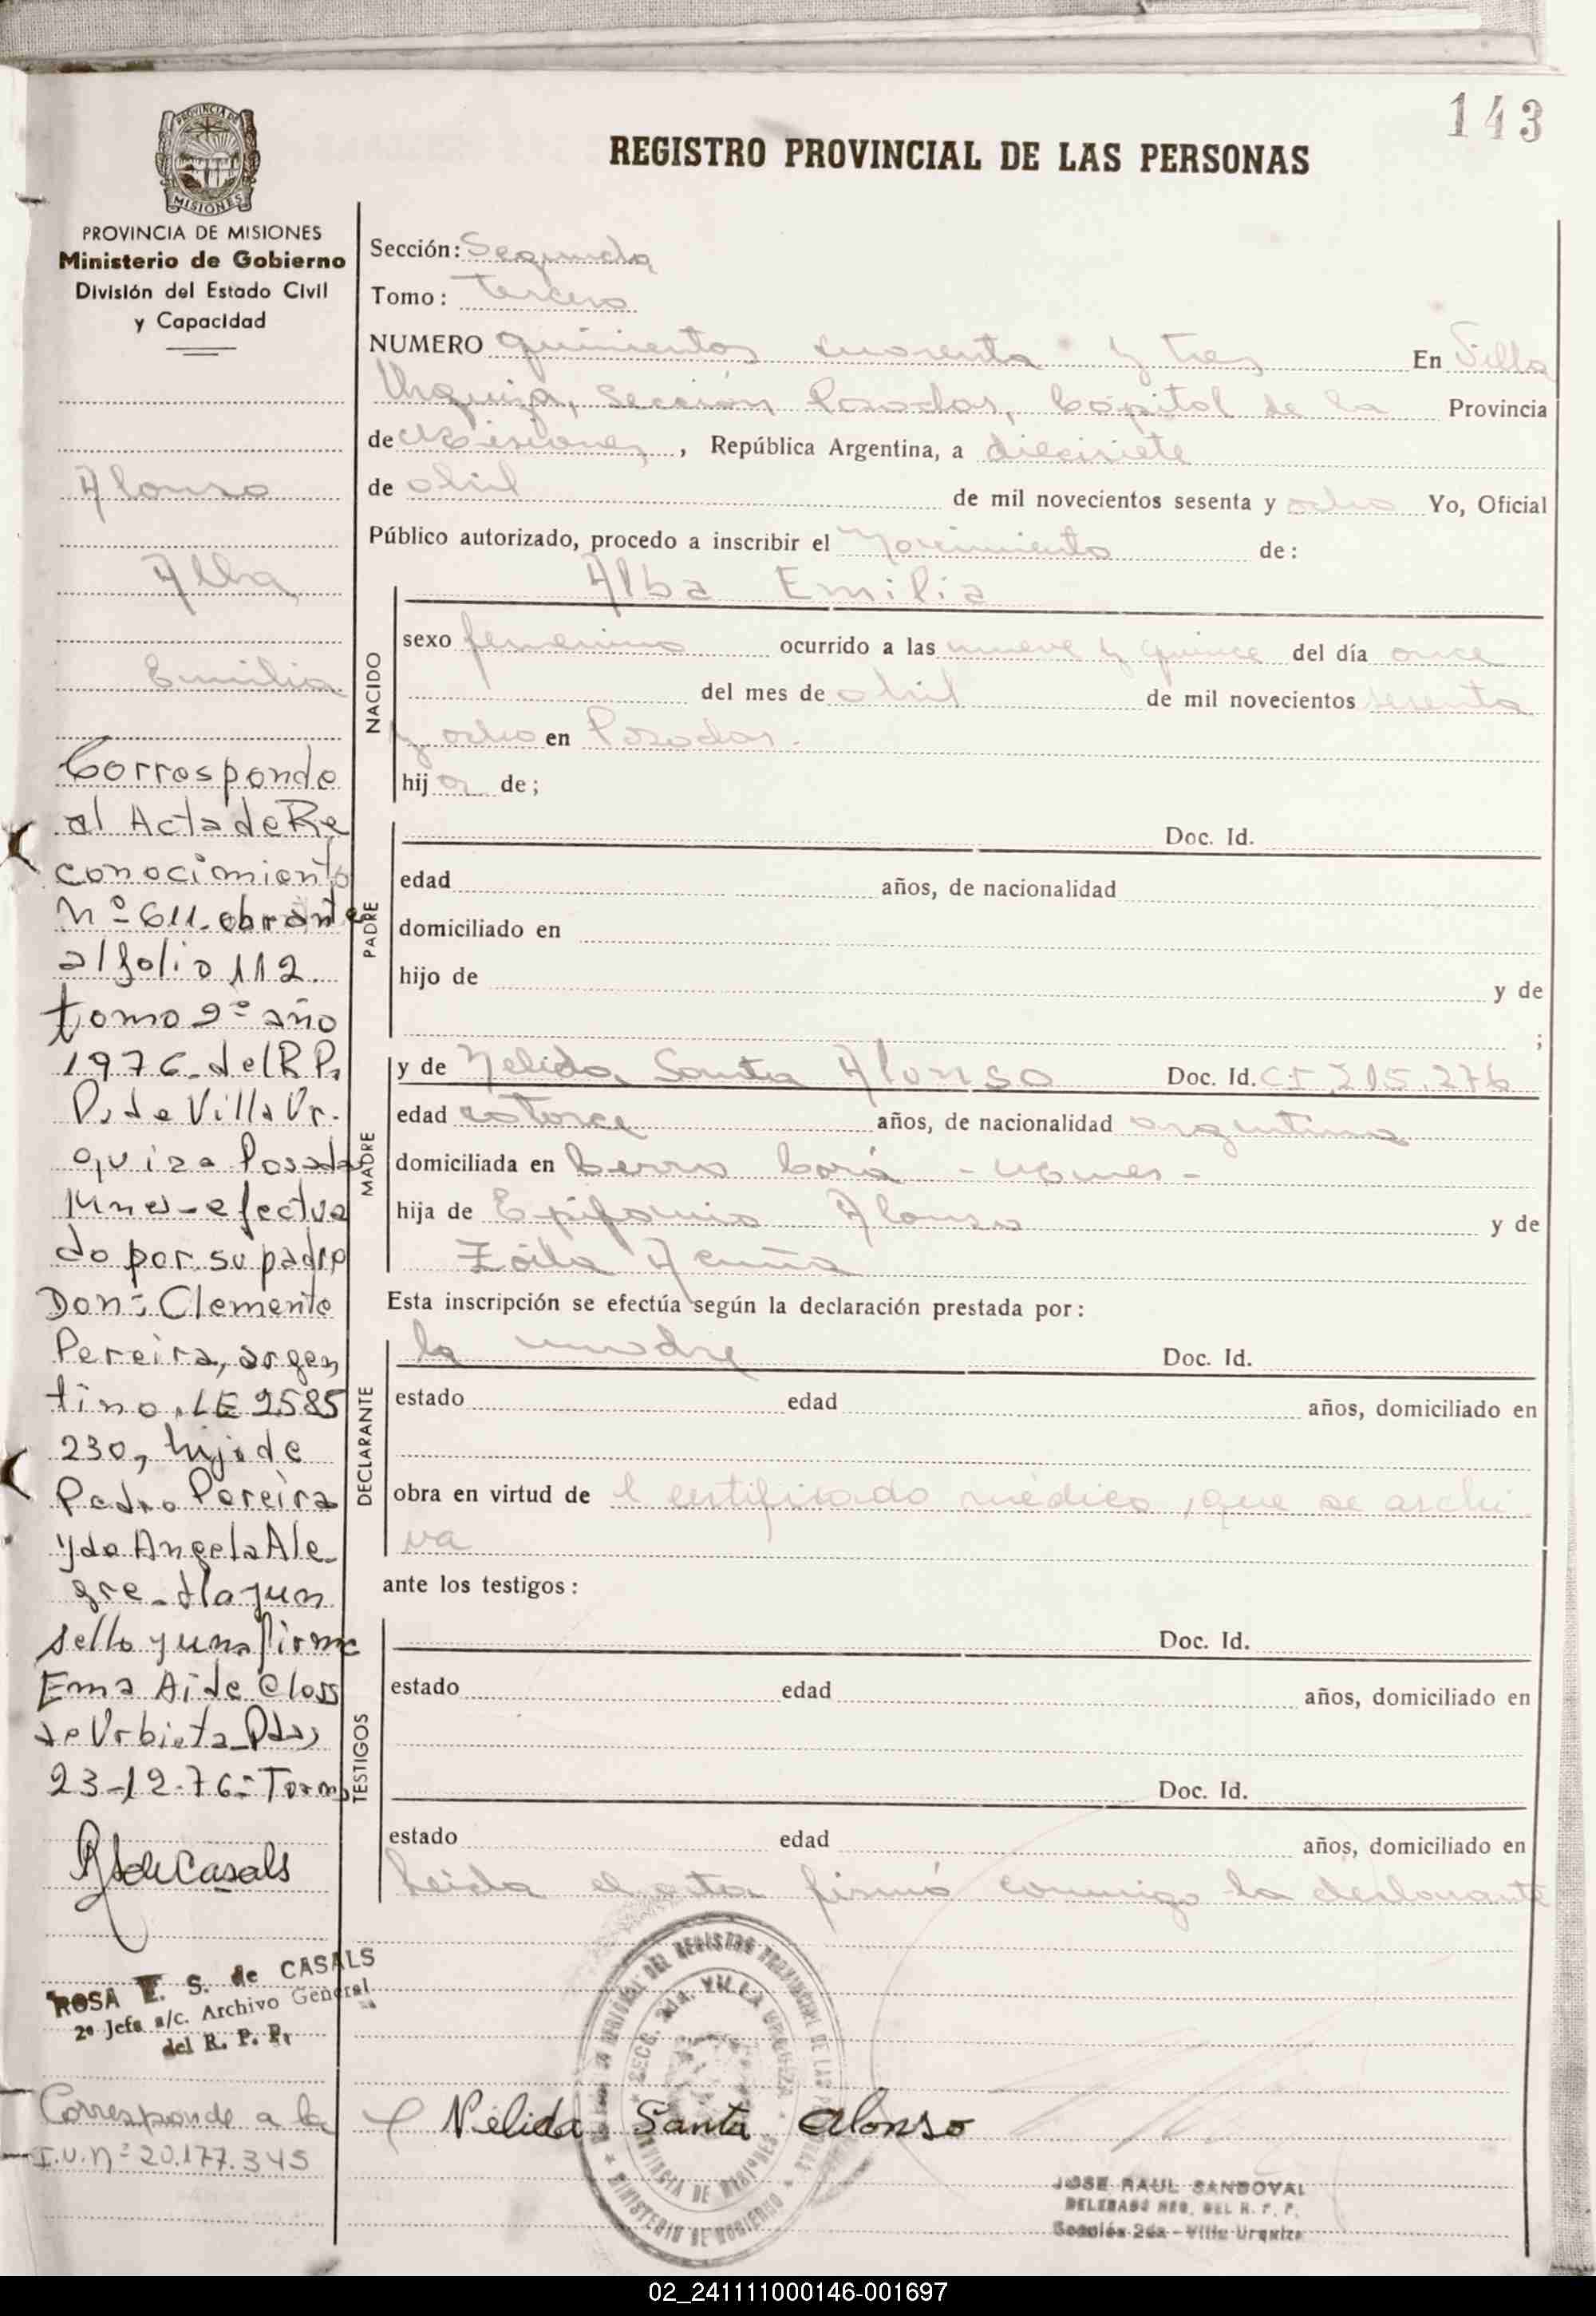 143
REGISTRO PROVINCIAL DE LAS PERSONAS
PROVINCIA DE MISIONES
Ministerio de Gobierno
División del Estado Civil
y Capacidad
Alonso
Alba
Emilia
Corresponde
al Acta de Re
conocimiento
Nº 611. obrante
al folio 112.
tomo 2º año
1976. del R.P.
P. de Villa Ur.
quiza Posadas
Mnes - efectua
do por su padre
Don: Clemente
Pereira, argen
tino, LE 2585
230, hijo de
Pedro Pereira
y de Angela Ale
gre - Hay un
sello y una firma
Ema Aide Closs
de Urbieta - Pdas,
23-12-76
R S de Casals
ROSA E. S. de CASALS
2º Jefe a/c. Archivo General
del R. P. P.
Corresponde a la
I.U. nº 20.177.345
Sección: Segunda
Tomo: tercero
NUMERO quinientos cuarenta y tres En Villa
Urquiza, Sección Posadas, Capital de la Provincia
de Misiones, República Argentina, a diecisiete
de abril de mil novecientos sesenta y ocho Yo, Oficial
Público autorizado, procedo a inscribir el nacimiento de:
NACIDO
Alba Emilia
sexo femenino ocurrido a las nueve y quince del día once
del mes de abril de mil novecientos sesenta
y ocho en Posadas.
hija de;
PADRE
Doc. Id.
edad años, de nacionalidad
domiciliado en
hijo de y de
;
MADRE
y de Nelida Santa Alonso Doc. Id. CI 215.276
edad catorce años, de nacionalidad argentina
domiciliada en Cerro Corá -
hija de Epifanio Alonso y de
Zoila Acuña
Esta inscripción se efectúa según la declaración prestada por:
DECLARANTE
la madre Doc. Id.
estado edad años, domiciliado en
obra en virtud de l certificado médico, que se archi
va
ante los testigos:
TESTIGOS
Doc. Id.
estado edad años, domiciliado en
Doc. Id.
estado edad años, domiciliado en
Leida el acta firmó conmigo la declarante
Nélida Santa Alonso
JOSE RAUL SANDOVAL
DELEGADO REG. DEL R. P. P.
Sección 2da - Villa Urquiza
02_241111000146-001697